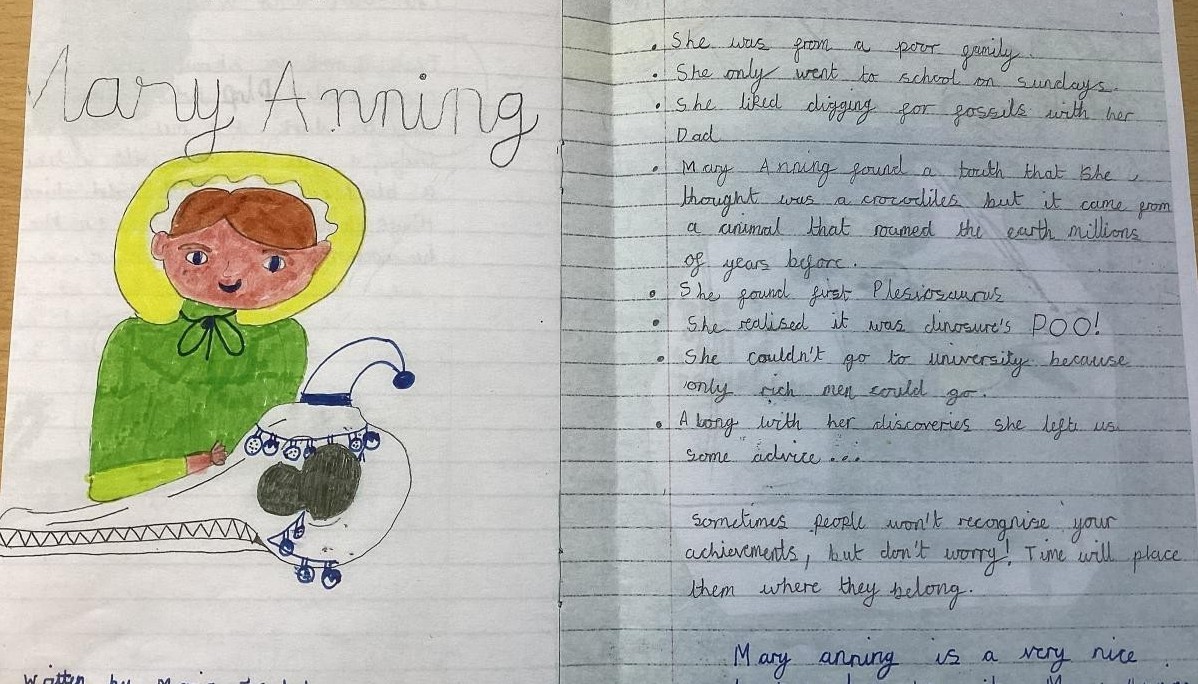 Mary Anning
written by
• She was from a poor family.
• She only went to school on sundays.
• She liked digging for fossils with her
Dad
• Mary Anning found a tooth that she
thought was a crocodiles but it came from
a animal that roamed the earth millions
of years before.
• She found first Plesiosaurus
• She realised it was dinosure's POO!
• She couldn't go to university because
only rich men could go.
• Along with her discoveries she left us
some advice...
sometimes people won't recognise your
achievements, but don't worry! Time will place
them where they belong.
Mary anning is a very nice